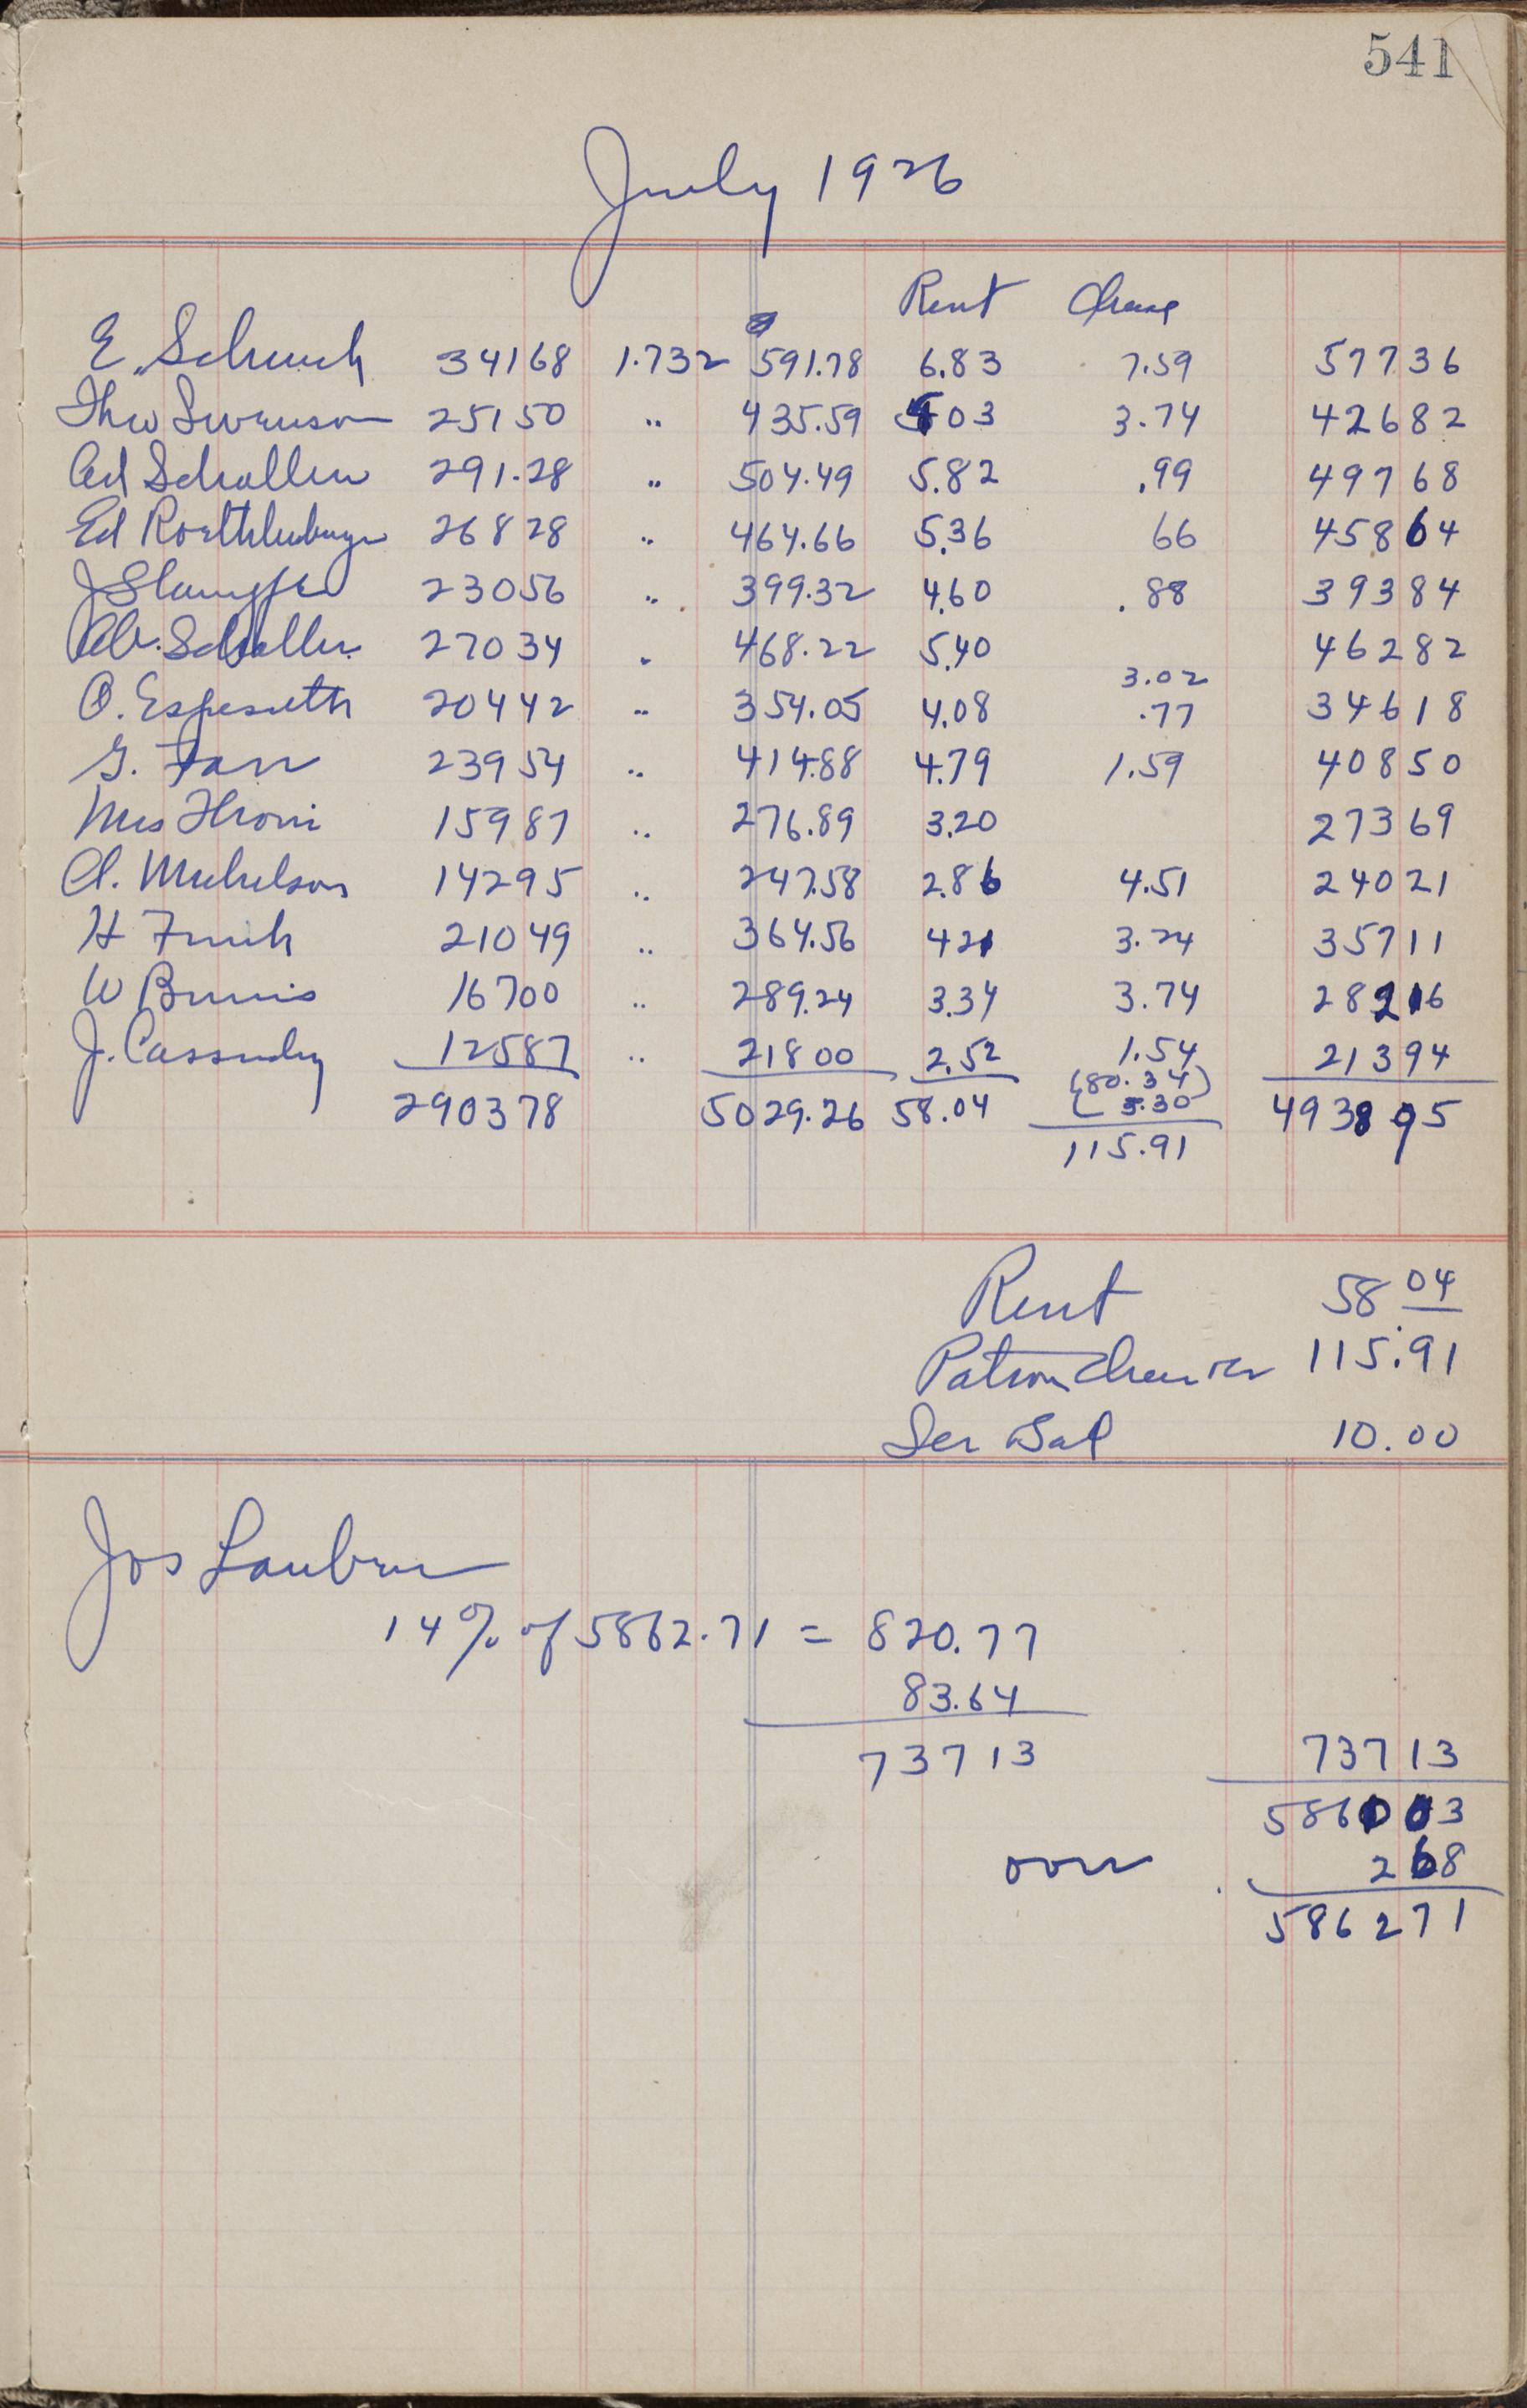 541
July 1926
Rent Cheese
E. Schuch 34168 1.732 591.78 6.83 7.59 57736
Theo Swenson 25150 " 435.59 503 3.74 42682
Ad Schaller 291.28 " 504.49 5.82 .99 49768
Ed Roethlisberger 26828 " 464.66 5.36 66 45864
J Stampfli 23056 " 399.32 4.60 .88 39384
Alb. Schaller 27034 " 468.22 5.40 46282
3.02
O. Espeseth 20442 " 354.05 4.08 .77 34618
G. Farr 23954 " 414.88 4.79 1.59 40850
Mrs Throni 15987 " 276.89 3.20 27369
A. Michelson 14295 " 247.58 2.86 4.51 24021
H 21049 " 364.56 421 3.24 35711
W 16700 " 289.24 3.34 3.74 28216
J. Cassidy 12587 " 21800 2.52 1.54 21394
(80.34)
290378 5029.26 58.04 5.30 493895
115.91
Rent 58 04
Patron Cheese 115.91
Sec Sal 10.00
Jos Laubner
14% of 5862.71 = 820.77
83.64
73713 73713
586003
over 268
586271